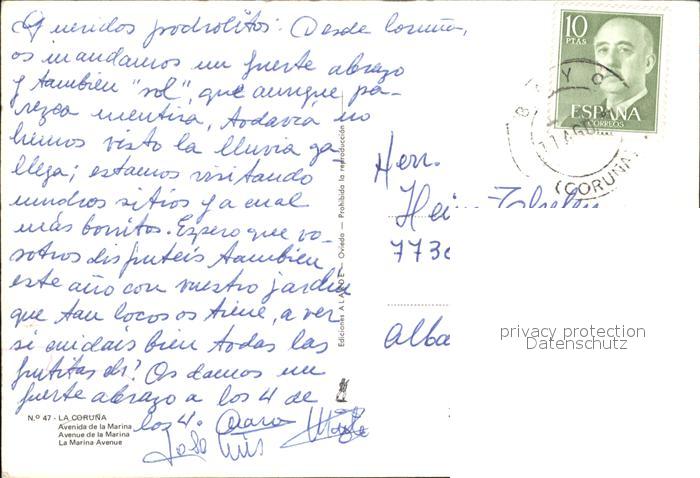 Queridos padrolitos: Desde Coruña,
os mandamos un fuerte abrazo
y tambien "sol", que aunque pa-
rezca mentira, todavía no
hemos visto la lluvia ga-
llega; estamos visitando
muchos sitios y a cual
más bonitos. Espero que vo-
sotros disfruteis tambien
este año con vuestro jardin
que tan locos os tiene, a ver
si cuidais bien todas las
frutitas eh? Os damos un
fuerte abrazo a los 4 de
los 4.
José Luis
N.º 47 - LA CORUÑA
Avenida de la Marina
Avenue de la Marina
La Marina Avenue
Ediciones ALARDE — Oviedo — Prohibida la reproducción
10
PTAS
ESPAÑA
CORREOS
(CORUÑA)
Herr.
773
Alba
privacy protection
Datenschutz